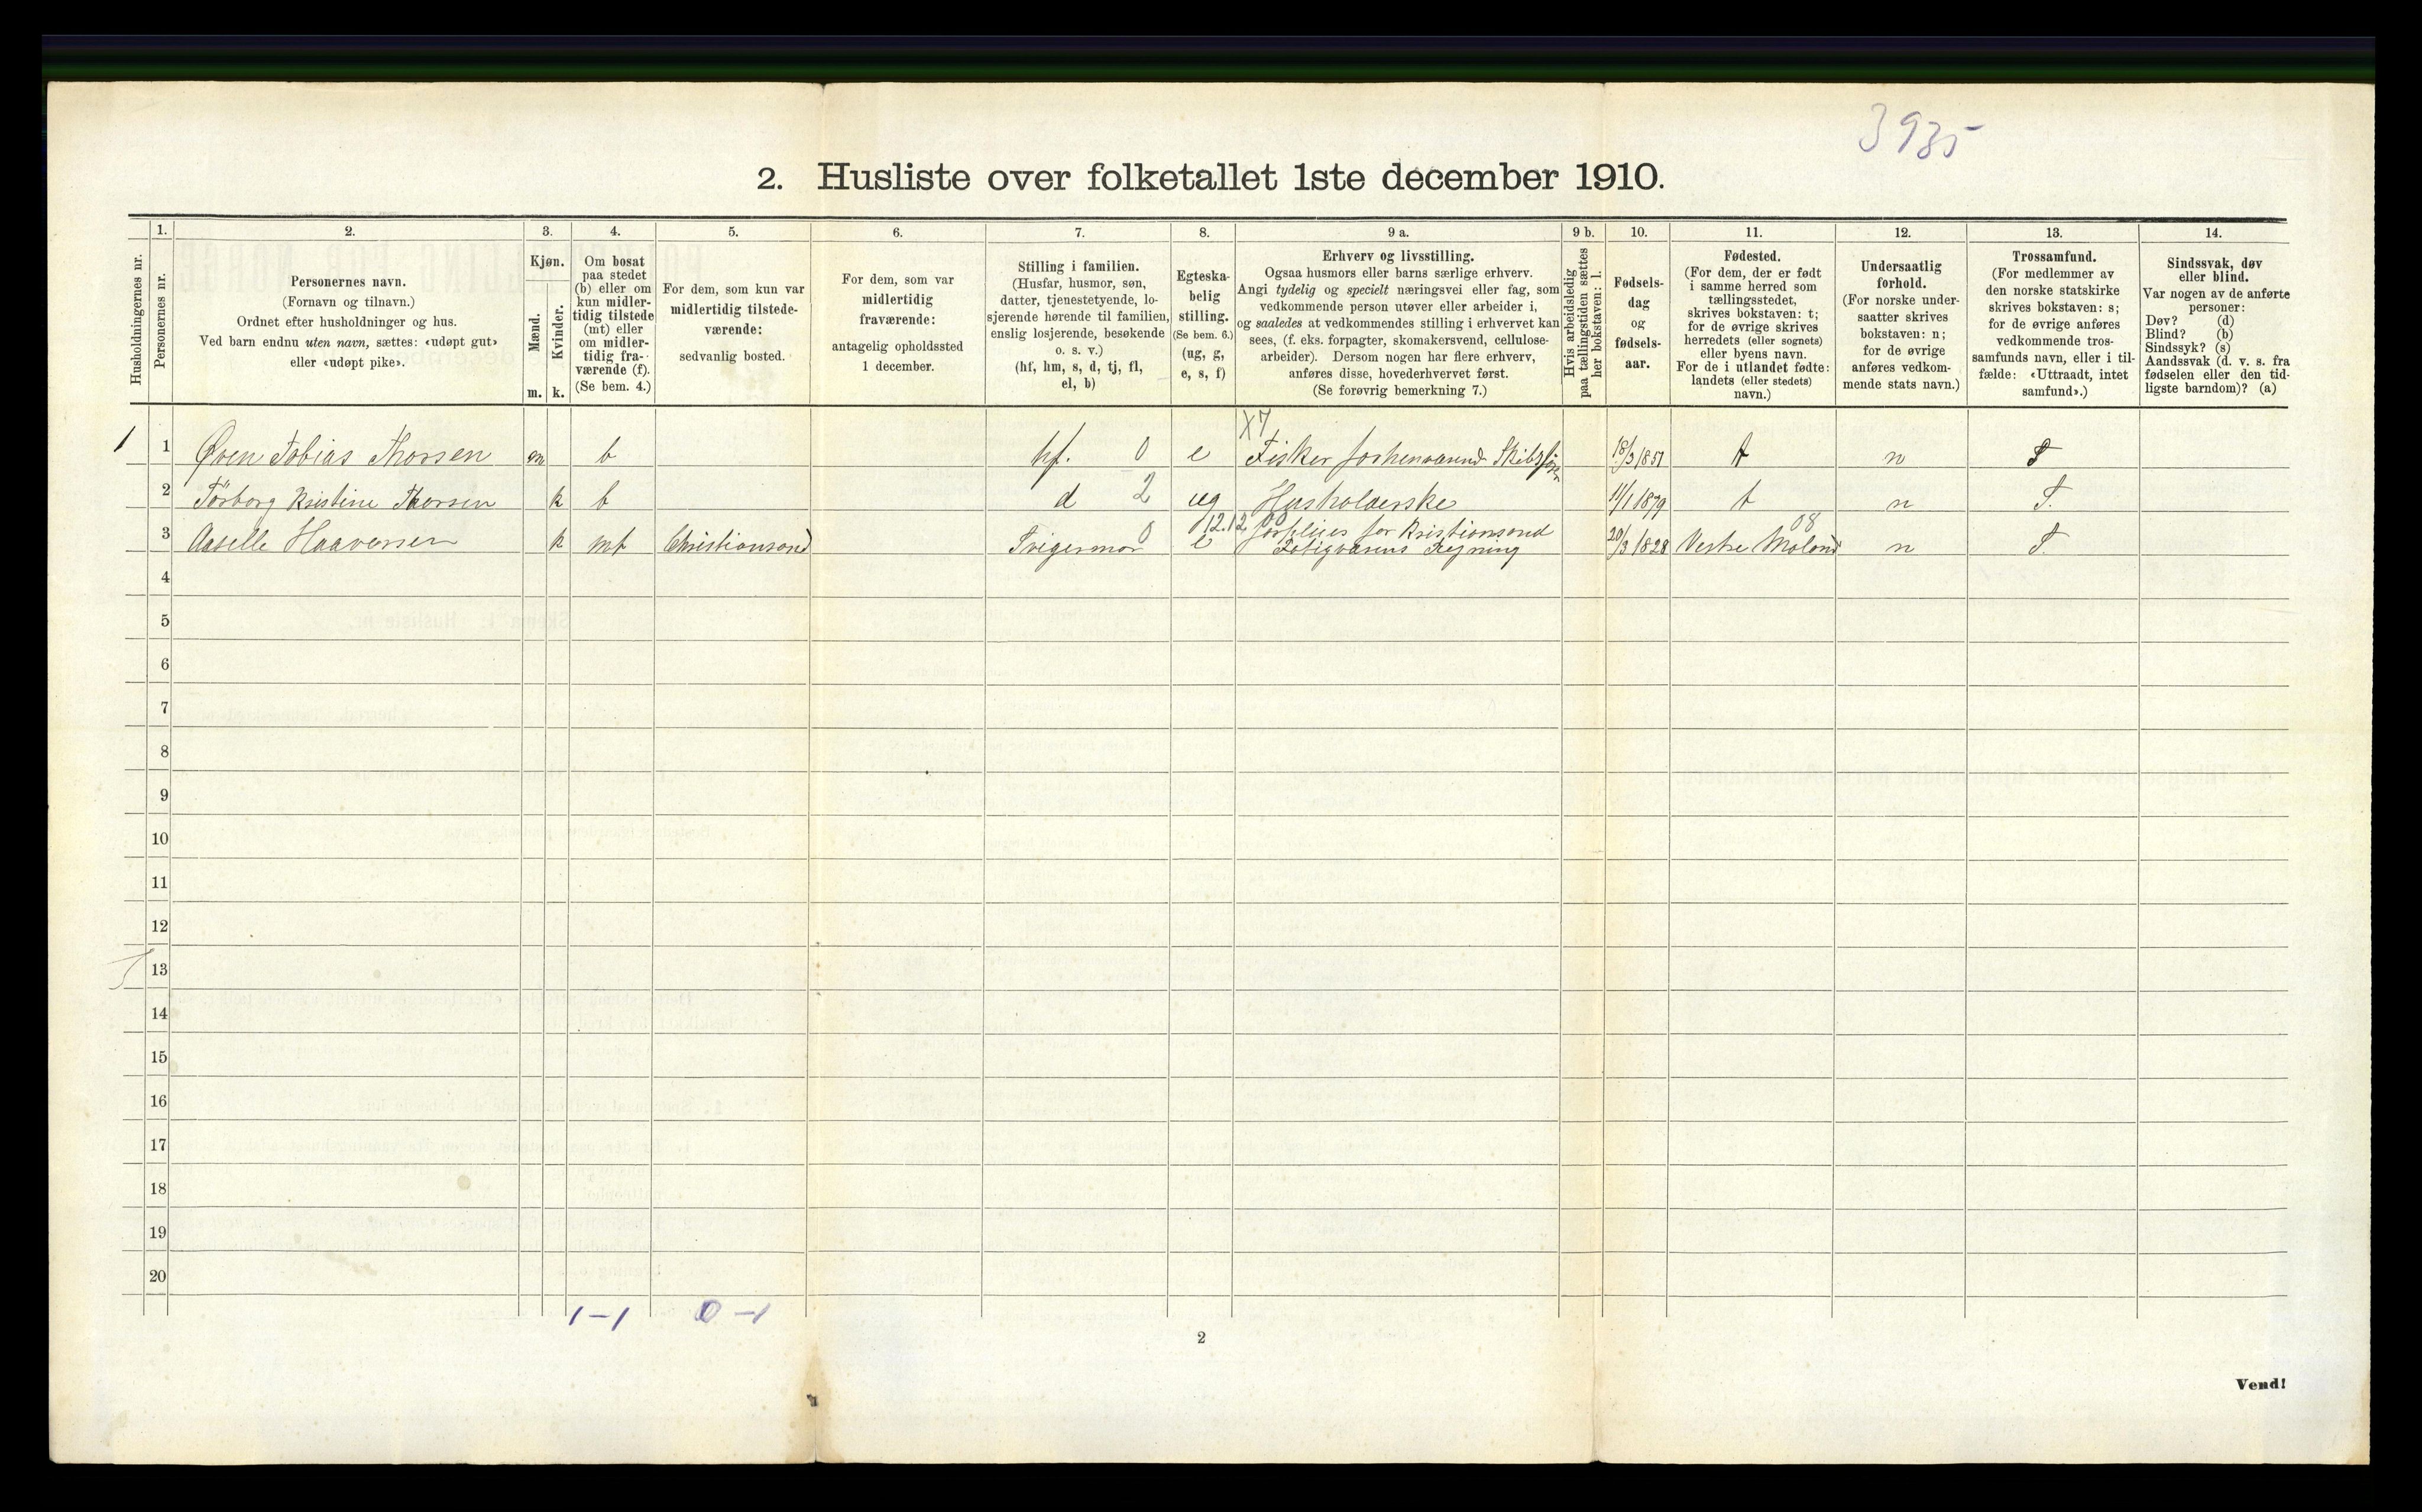 3935
2. Husliste over folketallet 1ste december 1910.
Husholdningernes nr.
1.
Personernes nr.
2.
Personernes navn.
(Fornavn og tilnavn.)
Ordnet efter husholdninger og hus.
Ved barn endnu uten navn, sættes: «udøpt gut»
eller «udøpt pike».
3.
Kjøn.
Mænd.
Kvinder.
m. k.
4.
Om bosat
paa stedet
(b) eller om
kun midler-
tidig tilstede
(mt) eller
om midler-
tidig fra-
værende (f).
(Se bem. 4.)
5.
For dem, som kun var
midlertidig tilstede-
værende:
sedvanlig bosted.
6.
For dem, som var
midlertidig
fraværende:
antagelig opholdssted
1 december.
7.
Stilling i familien.
(Husfar, husmor, søn,
datter, tjenestetyende, lo-
sjerende hørende til familien,
enslig losjerende, besøkende
o. s. v.)
(hf, hm, s, d, tj, fl,
el, b)
8.
Egteska-
belig
stilling.
(Se bem. 6.)
(ug, g,
e, s, f)
9 a.
Erhverv og livsstilling.
Ogsaa husmors eller barns særlige erhverv.
Angi tydelig og specielt næringsvei eller fag, som
vedkommende person utøver eller arbeider i,
og saaledes at vedkommendes stilling i erhvervet kan
sees, (f. eks. forpagter, skomakersvend, cellulose-
arbeider). Dersom nogen har flere erhverv,
anføres disse, hovederhvervet først.
(Se forøvrig bemerkning 7.)
9 b.
Hvis arbeidsledig
paa tællingstiden sættes
her bokstaven: l.
10.
Fødsels-
dag
og
fødsels-
aar.
11.
Fødested.
(For dem, der er født
i samme herred som
tællingsstedet,
skrives bokstaven: t;
for de øvrige skrives
herredets (eller sognets)
eller byens navn.
For de i utlandet fødte:
landets (eller stedets)
navn.)
12.
Undersaatlig
forhold.
(For norske under-
saatter skrives
bokstaven: n;
for de øvrige
anføres vedkom-
mende stats navn.)
13.
Trossamfund.
(For medlemmer av
den norske statskirke
skrives bokstaven: s;
for de øvrige anføres
vedkommende tros-
samfunds navn, eller i til-
fælde: «Uttraadt, intet
samfund».)
14.
Sindssvak, døv
eller blind.
Var nogen av de anførte
personer:
Døv? (d)
Blind? (b)
Sindssyk? (s)
Aandssvak (d. v. s. fra
fødselen eller den tid-
ligste barndom)? (a)
X7
1 1 Øven Tobias Thorsen m b hf. 0 e Fisker forhenværend 18/3 1851 t n
2 Torborg Kristine Thorsen k b d 2 ug Husholderske 11/1 1879 t n
12.12 08
3 Aaselle Haaversen k mt Christiansand Svigermor 0 e forpleies for Kristiansand
Fatigvæsens Regning 20/3 1828 Vestre Moland n
4
5
6
7
8
9
10
11
12
13
14
15
16
17
18
19
20
1-1 0-1
2
Vend!